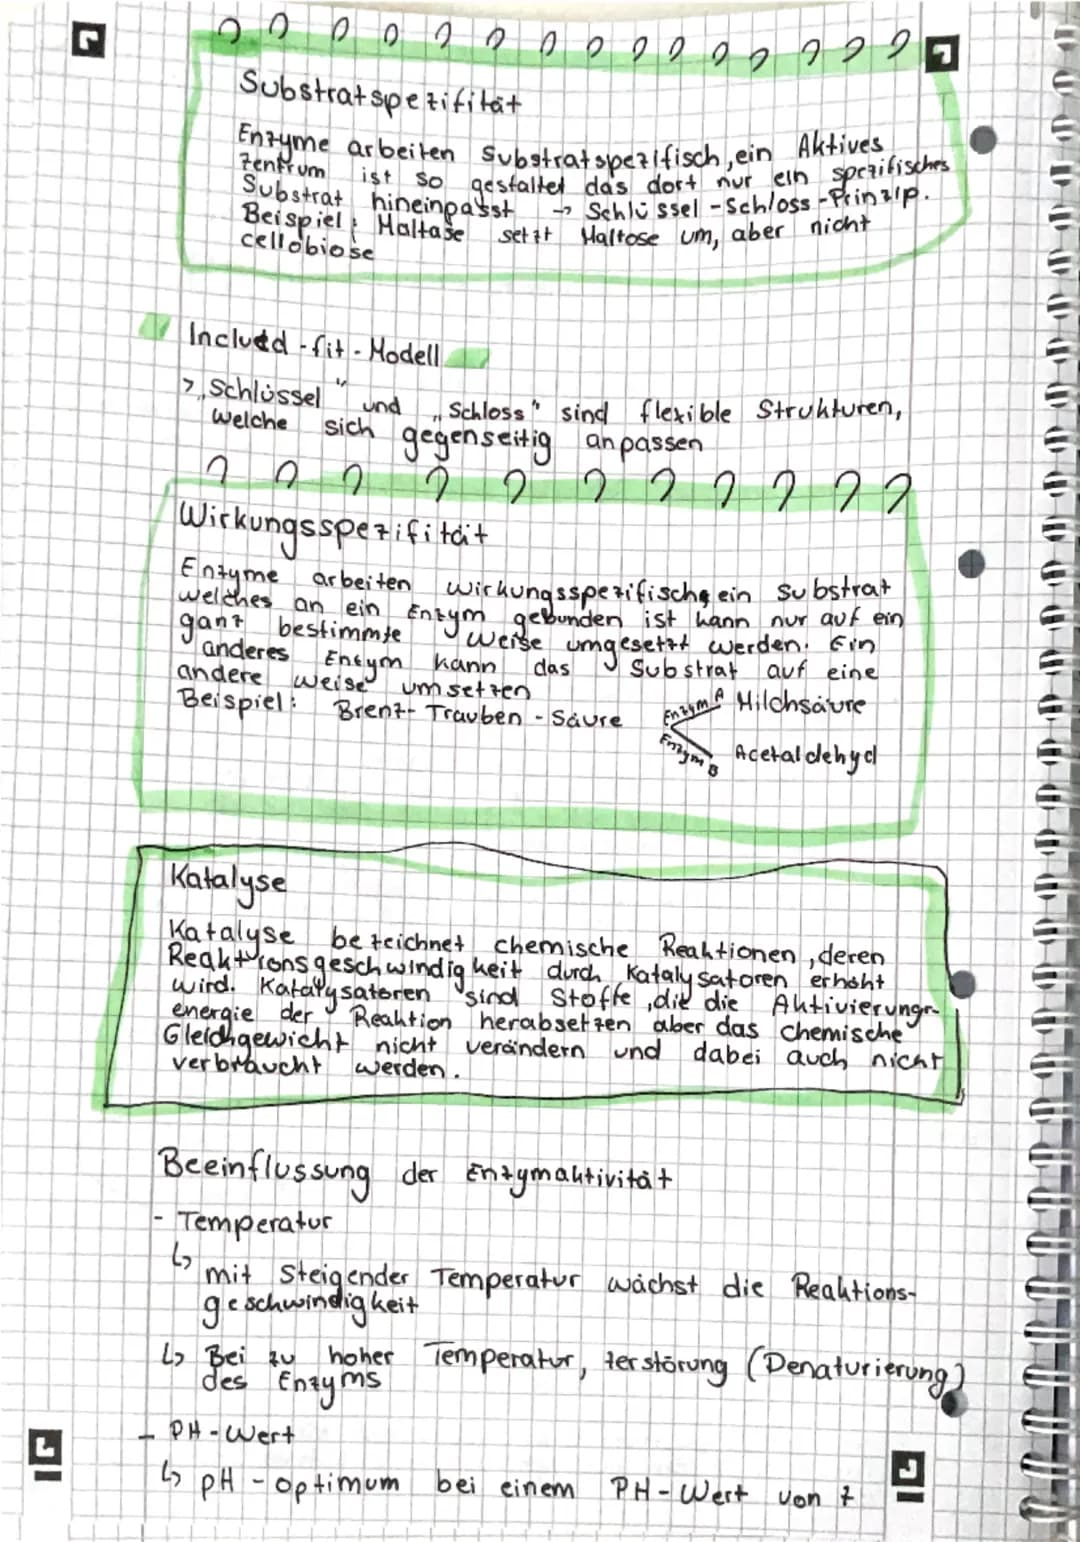 Substratspezifität
Enzyme arbeiten Substratspezifisch, ein Aktives
Zentrum ist so gestaltet das dort nur ein spezifisches
Substrat hineinpasst → Schlüssel-Schloss-Prinzip.
Beispiel: Maltase setzt Maltose um, aber nicht
cellobiose
Includd-fit-Modell
> „Schlüssel" und „Schloss" sind flexible Strukturen,
welche sich gegenseitig anpassen
Wirkungsspezifität
Enzyme arbeiten wirkungsspezifisch, ein Substrat
welches an ein Enzym gebunden ist kann nur auf ein
ganz bestimmte Weise umgesetzt werden. Ein
anderes Enzym kann das Substrat auf eine
andere Weise umsetzen
Beispiel: Brenz-Trauben-Säure Enzym A Milchsäure
Enzym B Acetaldehyd
Katalyse
Katalyse bezeichnet chemische Reaktionen, deren
Reaktionsgeschwindigkeit durch Katalysatoren erhöht
wird. Katalysatoren sind Stoffe, die die Aktivierungs-
energie der Reaktion herabsetzen aber das chemische
Gleichgewicht nicht verändern und dabei auch nicht
verbraucht werden.
Beeinflussung der Enzymaktivität
- Temperatur
↳ mit Steigender Temperatur wächst die Reaktions-
geschwindigkeit
↳ Bei zu hoher Temperatur, zerstörung (Denaturierung)
des Enzyms
- PH-Wert
↳ pH-optimum bei einem PH-Wert von 7